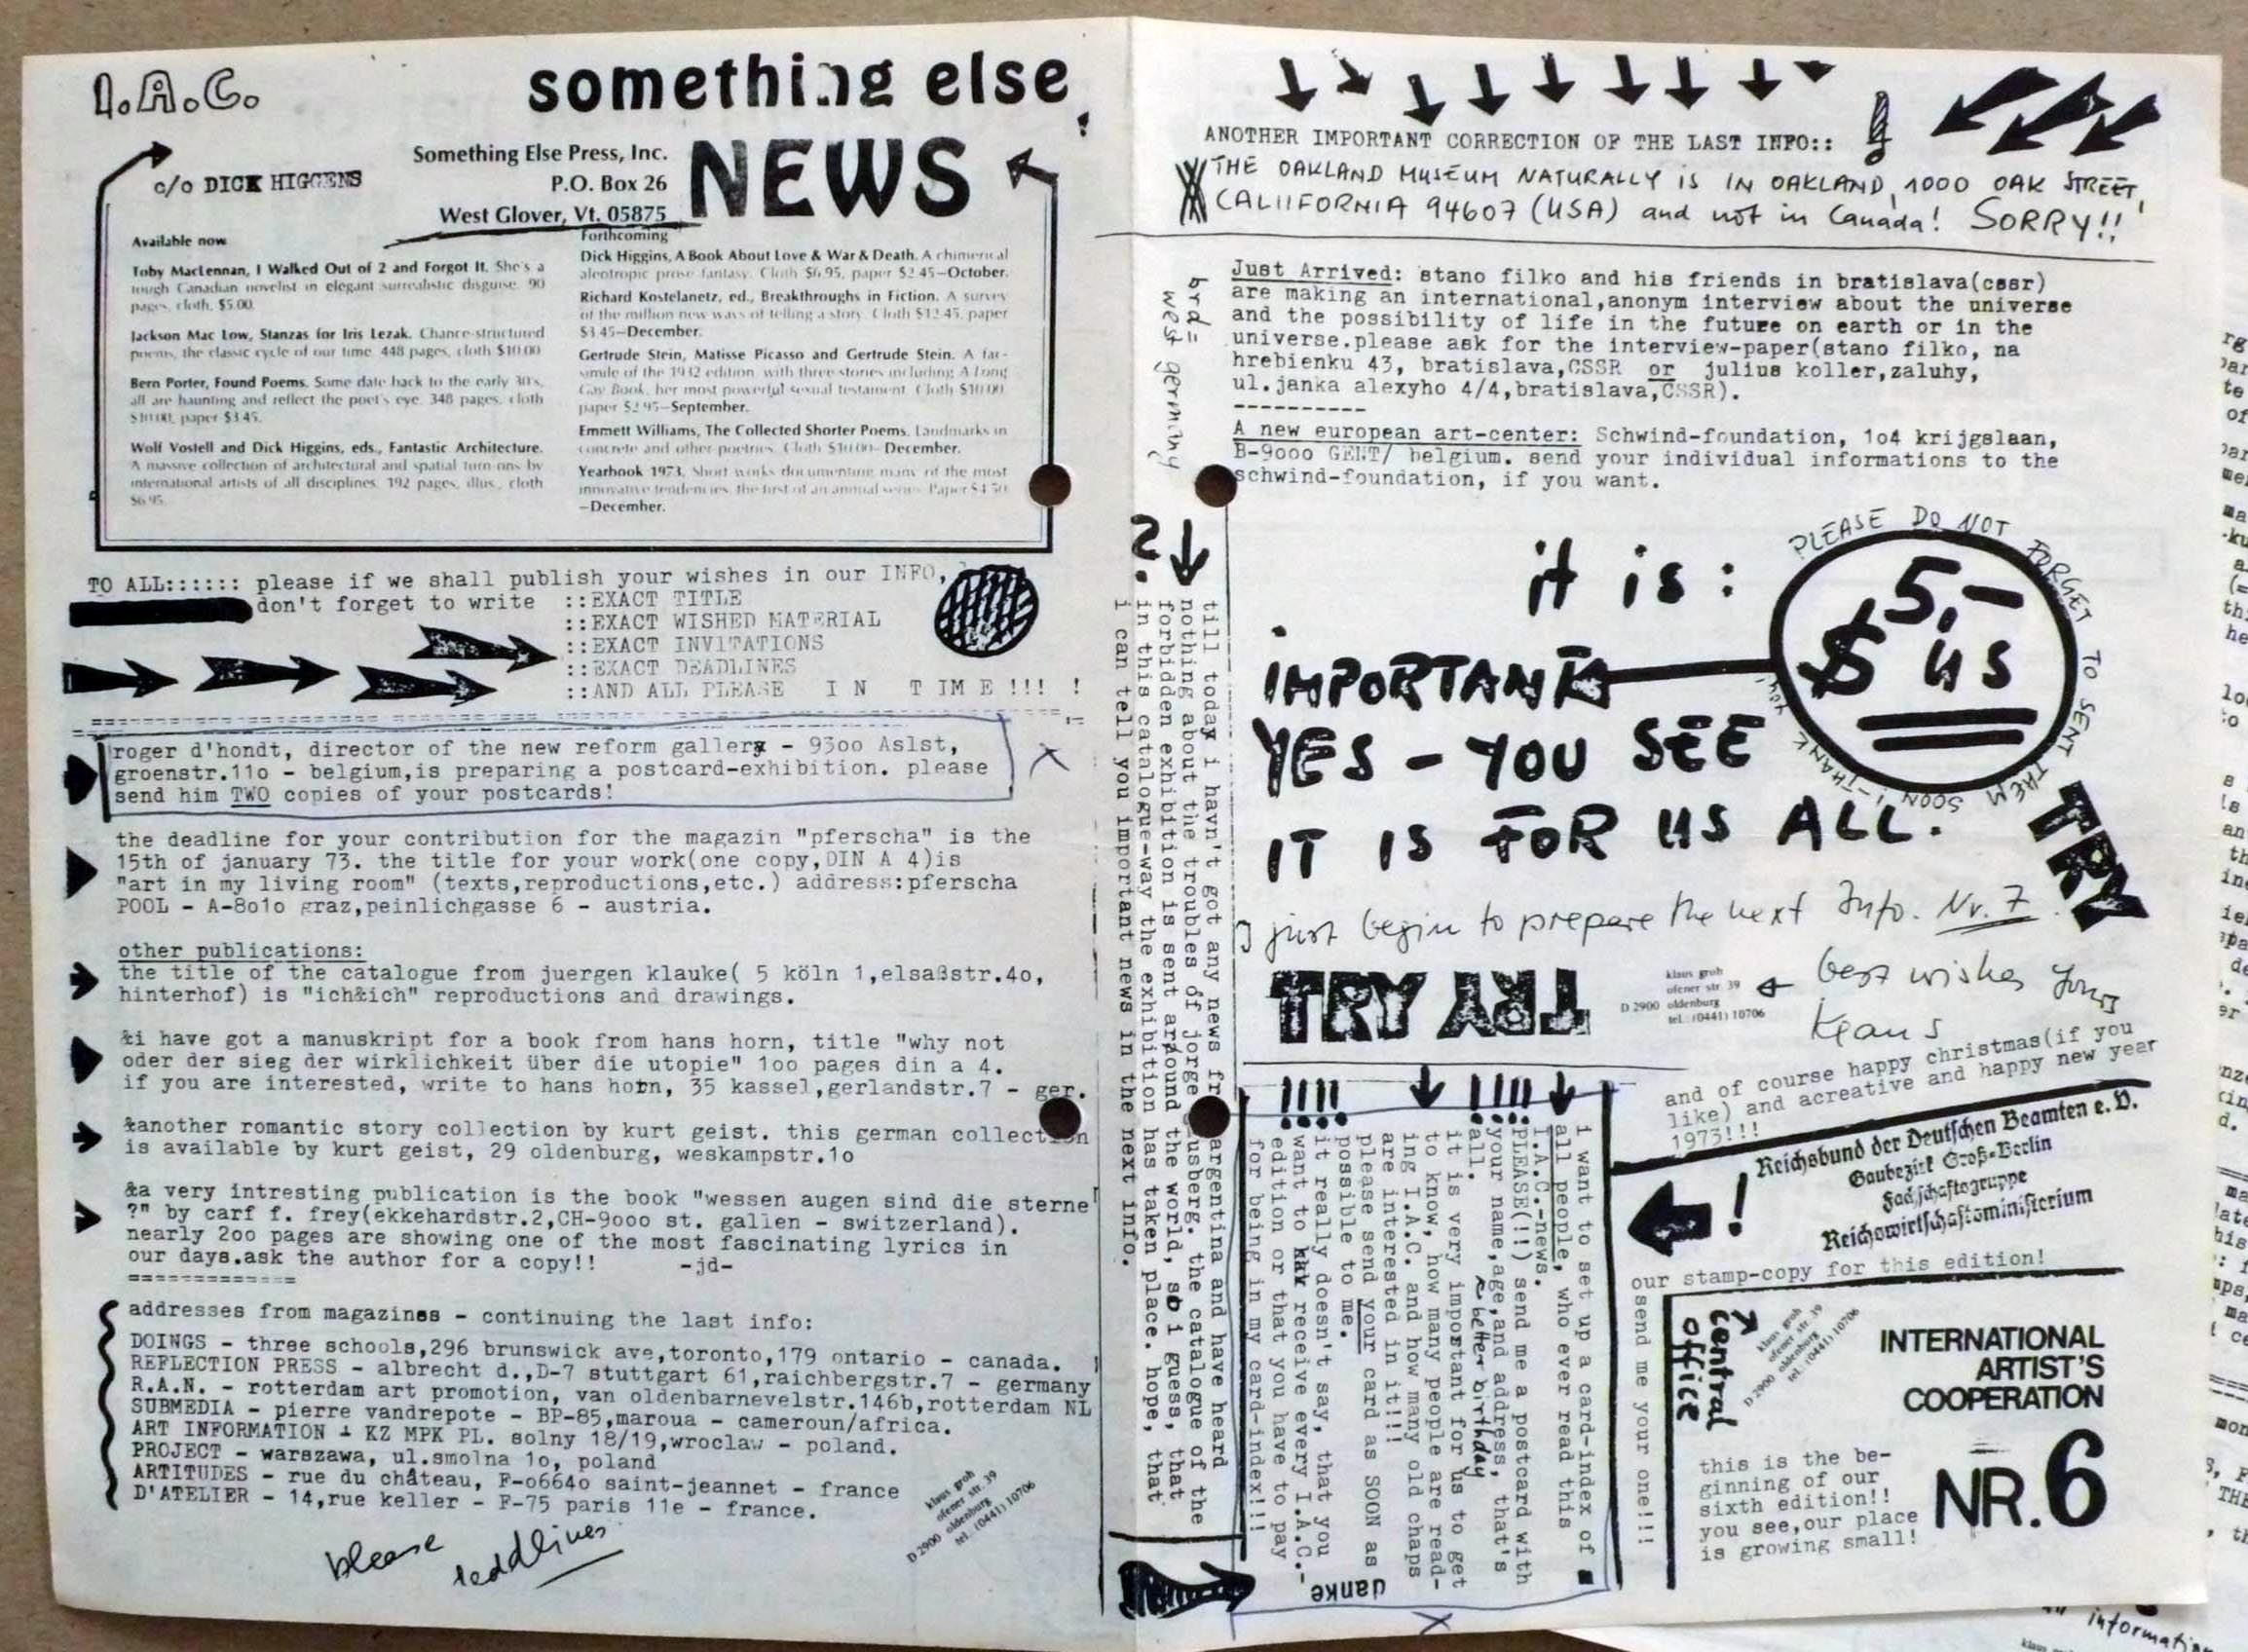 I.A.C.
something else
NEWS
c/o DICK HIGGENS
Something Else Press, Inc.
P.O. Box 26
West Glover, Vt. 05875
Available now
Toby MacLennan, I Walked Out of 2 and Forgot It. She's a
tough Canadian novelist in elegant surrealistic disguise. 90
pages, cloth, $5.00.
Jackson Mac Low, Stanzas for Iris Lezak. Chance-structured
poems, the classic cycle of our time. 448 pages, cloth $10.00
Bern Porter, Found Poems. Some date back to the early 30's,
all are haunting and reflect the poet's eye. 348 pages, cloth
$10.00, paper $3.45.
Wolf Vostell and Dick Higgins, eds., Fantastic Architecture.
A massive collection of architectural and spatial turn-ons by
international artists of all disciplines. 192 pages, illus., cloth
$6.95.
Forthcoming
Dick Higgins, A Book About Love & War & Death. A chimerical
aleotropic prose fantasy. Cloth $6.95, paper $2.45—October.
Richard Kostelanetz, ed., Breakthroughs in Fiction. A survey
of the million new ways of telling a story. Cloth $12.45, paper
$3.45—December.
Gertrude Stein, Matisse Picasso and Gertrude Stein. A fac-
simile of the 1932 edition, with three stories including A Long
Gay Book, her most powerful sexual testament. Cloth $10.00
paper $2.95—September.
Emmett Williams, The Collected Shorter Poems. Landmarks in
concrete and other poetries. Cloth $10.00—December.
Yearbook 1973. Short works documenting many of the most
innovative tendencies, the first of an annual series. Paper $4.50
—December.
TO ALL:::::: please if we shall publish your wishes in our INFO,
don't forget to write ::EXACT TITLE
::EXACT WISHED MATERIAL
::EXACT INVITATIONS
::EXACT DEADLINES
::AND ALL PLEASE I N T IM E !!! !
roger d'hondt, director of the new reform gallery - 93oo Aslst,
groenstr.11o - belgium,is preparing a postcard-exhibition. please
send him TWO copies of your postcards!
X
the deadline for your contribution for the magazin "pferscha" is the
15th of january 73. the title for your work(one copy,DIN A 4)is
"art in my living room" (texts,reproductions,etc.) address:pferscha
POOL - A-8o1o graz,peinlichgasse 6 - austria.
other publications:
the title of the catalogue from juergen klauke( 5 köln 1,elsaßstr.4o,
hinterhof) is "ich&ich" reproductions and drawings.
&i have got a manuskript for a book from hans horn, title "why not
oder der sieg der wirklichkeit über die utopie" 1oo pages din a 4.
if you are interested, write to hans horn, 35 kassel,gerlandstr.7 - ger.
&another romantic story collection by kurt geist. this german collection
is available by kurt geist, 29 oldenburg, weskampstr.1o
&a very intresting publication is the book "wessen augen sind die sterne
?" by carf f. frey(ekkehardstr.2,CH-9ooo st. gallen - switzerland).
nearly 2oo pages are showing one of the most fascinating lyrics in
our days.ask the author for a copy!! -jd-
============
addresses from magazines - continuing the last info:
DOINGS - three schools,296 brunswick ave,toronto,179 ontario - canada.
REFLECTION PRESS - albrecht d.,D-7 stuttgart 61,raichbergstr.7 - germany
R.A.N. - rotterdam art promotion, van oldenbarnevelstr.146b,rotterdam NL
SUBMEDIA - pierre vandrepote - BP-85,maroua - cameroun/africa.
ART INFORMATION & KZ MPK PL. solny 18/19,wroclaw - poland.
PROJECT - warszawa, ul.smolna 1o, poland
ARTITUDES - rue du château, F-o664o saint-jeannet - france
D'ATELIER - 14,rue keller - F-75 paris 11e - france.
please deadlines
klaus groh
ofener str. 39
D 2900 oldenburg
tel. (0441) 10706
ANOTHER IMPORTANT CORRECTION OF THE LAST INFO::
THE OAKLAND MUSEUM NATURALLY IS IN OAKLAND, 1000 OAK STREET,
CALIIFORNIA 94607 (USA) and not in Canada! SORRY!!
brd=
west germany
Just Arrived: stano filko and his friends in bratislava(cssr)
are making an international,anonym interview about the universe
and the possibility of life in the future on earth or in the
universe.please ask for the interview-paper(stano filko, na
hrebienku 43, bratislava,CSSR or julius koller,zaluhy,
ul.janka alexyho 4/4,bratislava,CSSR).
----------
A new european art-center: Schwind-foundation, 1o4 krijgslaan,
B-9ooo GENT/ belgium. send your individual informations to the
schwind-foundation, if you want.
2.
till today i havn't got any news from argentina and have heard
nothing about the troubles of jorge glusberg. the catalogue of the
forbidden exhibition is sent around the world, so i guess, that
in this catalogue-way the exhibition has taken place. hope, that
i can tell you important news in the next info.
it is:
5,-
$ us
PLEASE DO NOT FORGET TO SENT THEM SOON !-THANK YOU!
IMPORTANT
YES - YOU SEE
IT IS FOR US ALL.
TRY
I just begin to prepare the next Info. Nr. 7.
TRY ART
klaus groh
ofener str 39
D 2900 oldenburg
tel.: (0441) 10706
best wishes yours
Klaus
and of course happy christmas(if you
like) and acreative and happy new year
1973!!!
!!!! !!!!
i want to set up a card-index of
all people, who ever read this
I.A.C.-news.
PLEASE(!!) send me a postcard with
your name,age,and address, that's
all.
better birthday
it is very important for us to get
to know, how many people are read-
ing I.A.C. and how many old chaps
are interested in it!!!
please send your card as SOON as
possible to me.
it really doesn't say, that you
want to receive every I.A.C.-
edition or that you have to pay
for being in my card-index!!!
danke
X
Reichsbund der Deutschen Beamten e. V.
Gaubezirk Groß-Berlin
Fachschaftsgruppe
Reichswirtschaftsministerium
!
our stamp-copy for this edition!
send me your one!!!
central
office
klaus groh
ofener str. 39
D 2900 oldenburg
tel. (0441) 10706
INTERNATIONAL
ARTIST'S
COOPERATION
NR.6
this is the be-
ginning of our
sixth edition!!
you see,our place
is growing small!
information